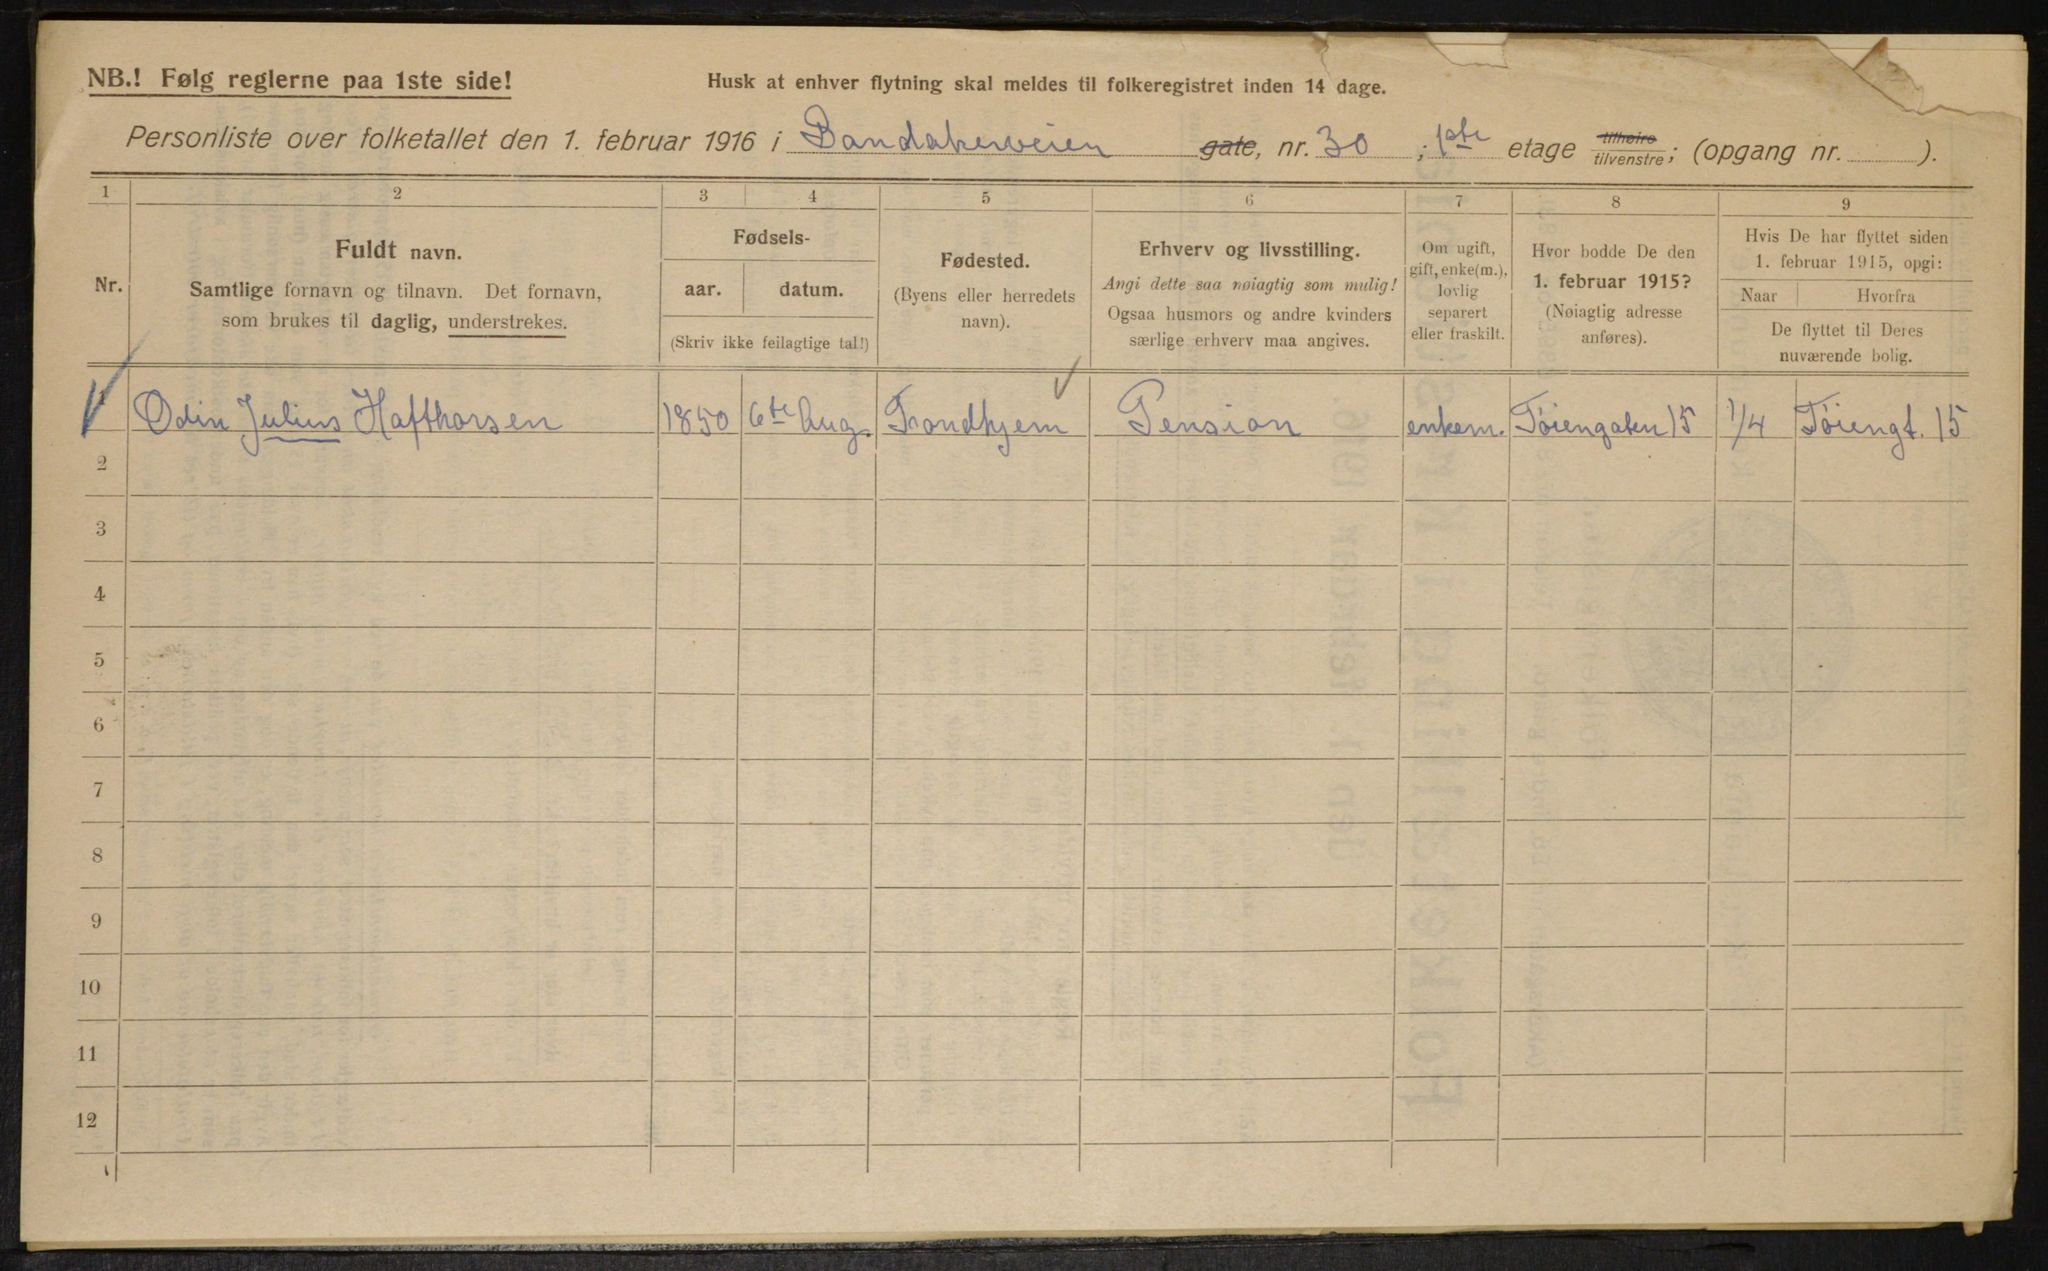 NB.! Følg reglerne paa 1ste side!
Husk at enhver flytning skal meldes til folkeregistret inden 14 dage.
Personliste over folketallet den 1. februar 1916 i Bandakerveien gate, nr. 30 ; 1ste etage tilhøire tilvenstre; (opgang nr. ).
1 2 3 4 5 6 7 8 9
Nr.
Fuldt navn.
Samtlige fornavn og tilnavn. Det fornavn,
som brukes til daglig, understrekes.
Fødsels-
aar. datum.
(Skriv ikke feilagtige tal!)
Fødested.
(Byens eller herredets
navn).
Erhverv og livsstilling.
Angi dette saa nøiagtig som mulig!
Ogsaa husmors og andre kvinders
særlige erhverv maa angives.
Om ugift,
gift, enke(m.),
lovlig
separert
eller fraskilt.
Hvor bodde De den
1. februar 1915?
(Nøiagtig adresse
anføres).
Hvis De har flyttet siden
1. februar 1915, opgi:
Naar Hvorfra
De flyttet til Deres
nuværende bolig.
1 Odin Julius Hafthorsen 1850 6te Aug. Trondhjem Pension enkem. Tøiengaten 15 1/4 Tøiengt. 15
2
3
4
5
6
7
8
9
10
11
12